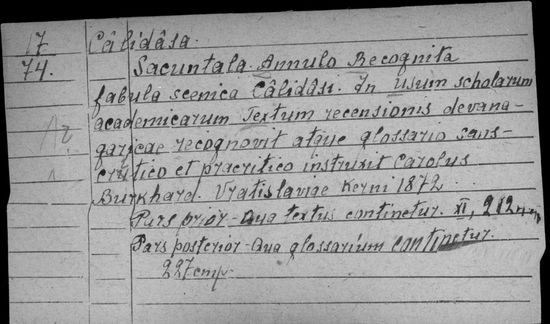 17 Câlidâsa.
74. Sacuntala Annulo Recognita
fabula scenica Câlidâsi. In usum scholarum
academicarum Textum recensionis devana-
garicae recognovit atque glossario sans-
critico et pracritico instruxit Carolus
Burkhard. Vratislaviae Kerni 1872
Pars prior - Qua textus continetur. XI, 212
Pars posterior - Qua glossarium continetur.
227 стр.